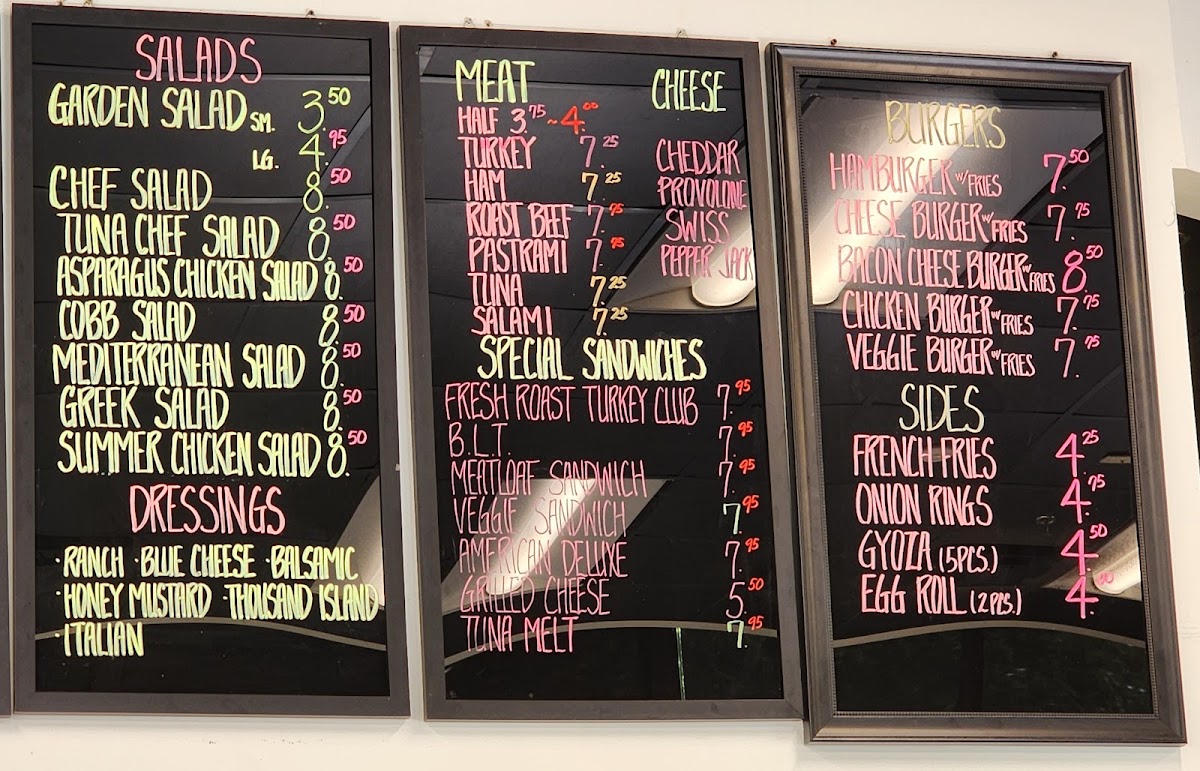 SALADS
GARDEN SALAD SM. 3.50
LG. 4.95
CHEF SALAD 8.50
TUNA CHEF SALAD 8.50
ASPARAGUS CHICKEN SALAD 8.50
COBB SALAD 8.50
MEDITERRANEAN SALAD 8.50
GREEK SALAD 8.50
SUMMER CHICKEN SALAD 8.50
DRESSINGS
·RANCH ·BLUE CHEESE ·BALSAMIC
·HONEY MUSTARD ·THOUSAND ISLAND
·ITALIAN
MEAT
HALF 3.75 ~4.00
TURKEY 7.25
HAM 7.25
ROAST BEEF 7.95
PASTRAMI 7.75
TUNA 7.25
SALAMI 7.25
CHEESE
CHEDDAR
PROVOLONE
SWISS
PEPPER JACK
SPECIAL SANDWICHES
FRESH ROAST TURKEY CLUB 7.95
B.L.T. 7.95
MEATLOAF SANDWICH 7.95
VEGGIE SANDWICH 7.95
AMERICAN DELUXE 7.95
GRILLED CHEESE 5.50
TUNA MELT 7.95
BURGERS
HAMBURGER W/FRIES 7.50
CHEESE BURGER W/FRIES 7.75
BACON CHEESE BURGER W/FRIES 8.50
CHICKEN BURGER W/FRIES 7.75
VEGGIE BURGER W/FRIES 7.75
SIDES
FRENCH FRIES 4.25
ONION RINGS 4.75
GYOZA (5PCS.) 4.50
EGG ROLL (2 PCS.) 4.00